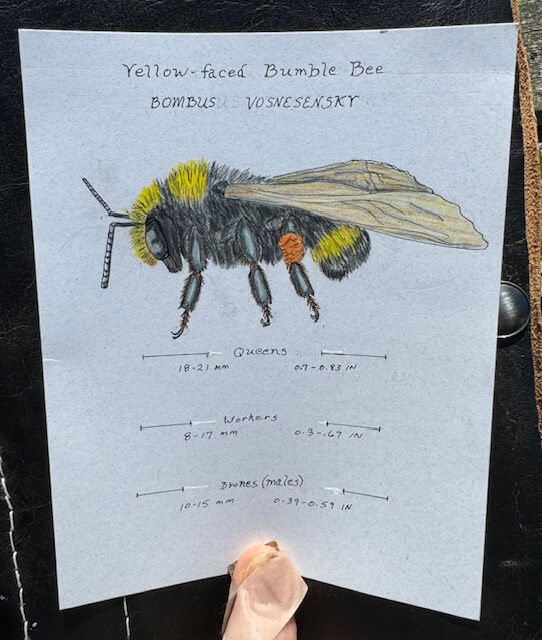 Yellow-faced Bumble Bee
BOMBUS VOSNESENSKY
Queens
18-21 mm 0.7-0.83 IN
Workers
8-17 mm 0.3-.67 IN
Drones (males)
10-15 mm 0.39-0.59 IN